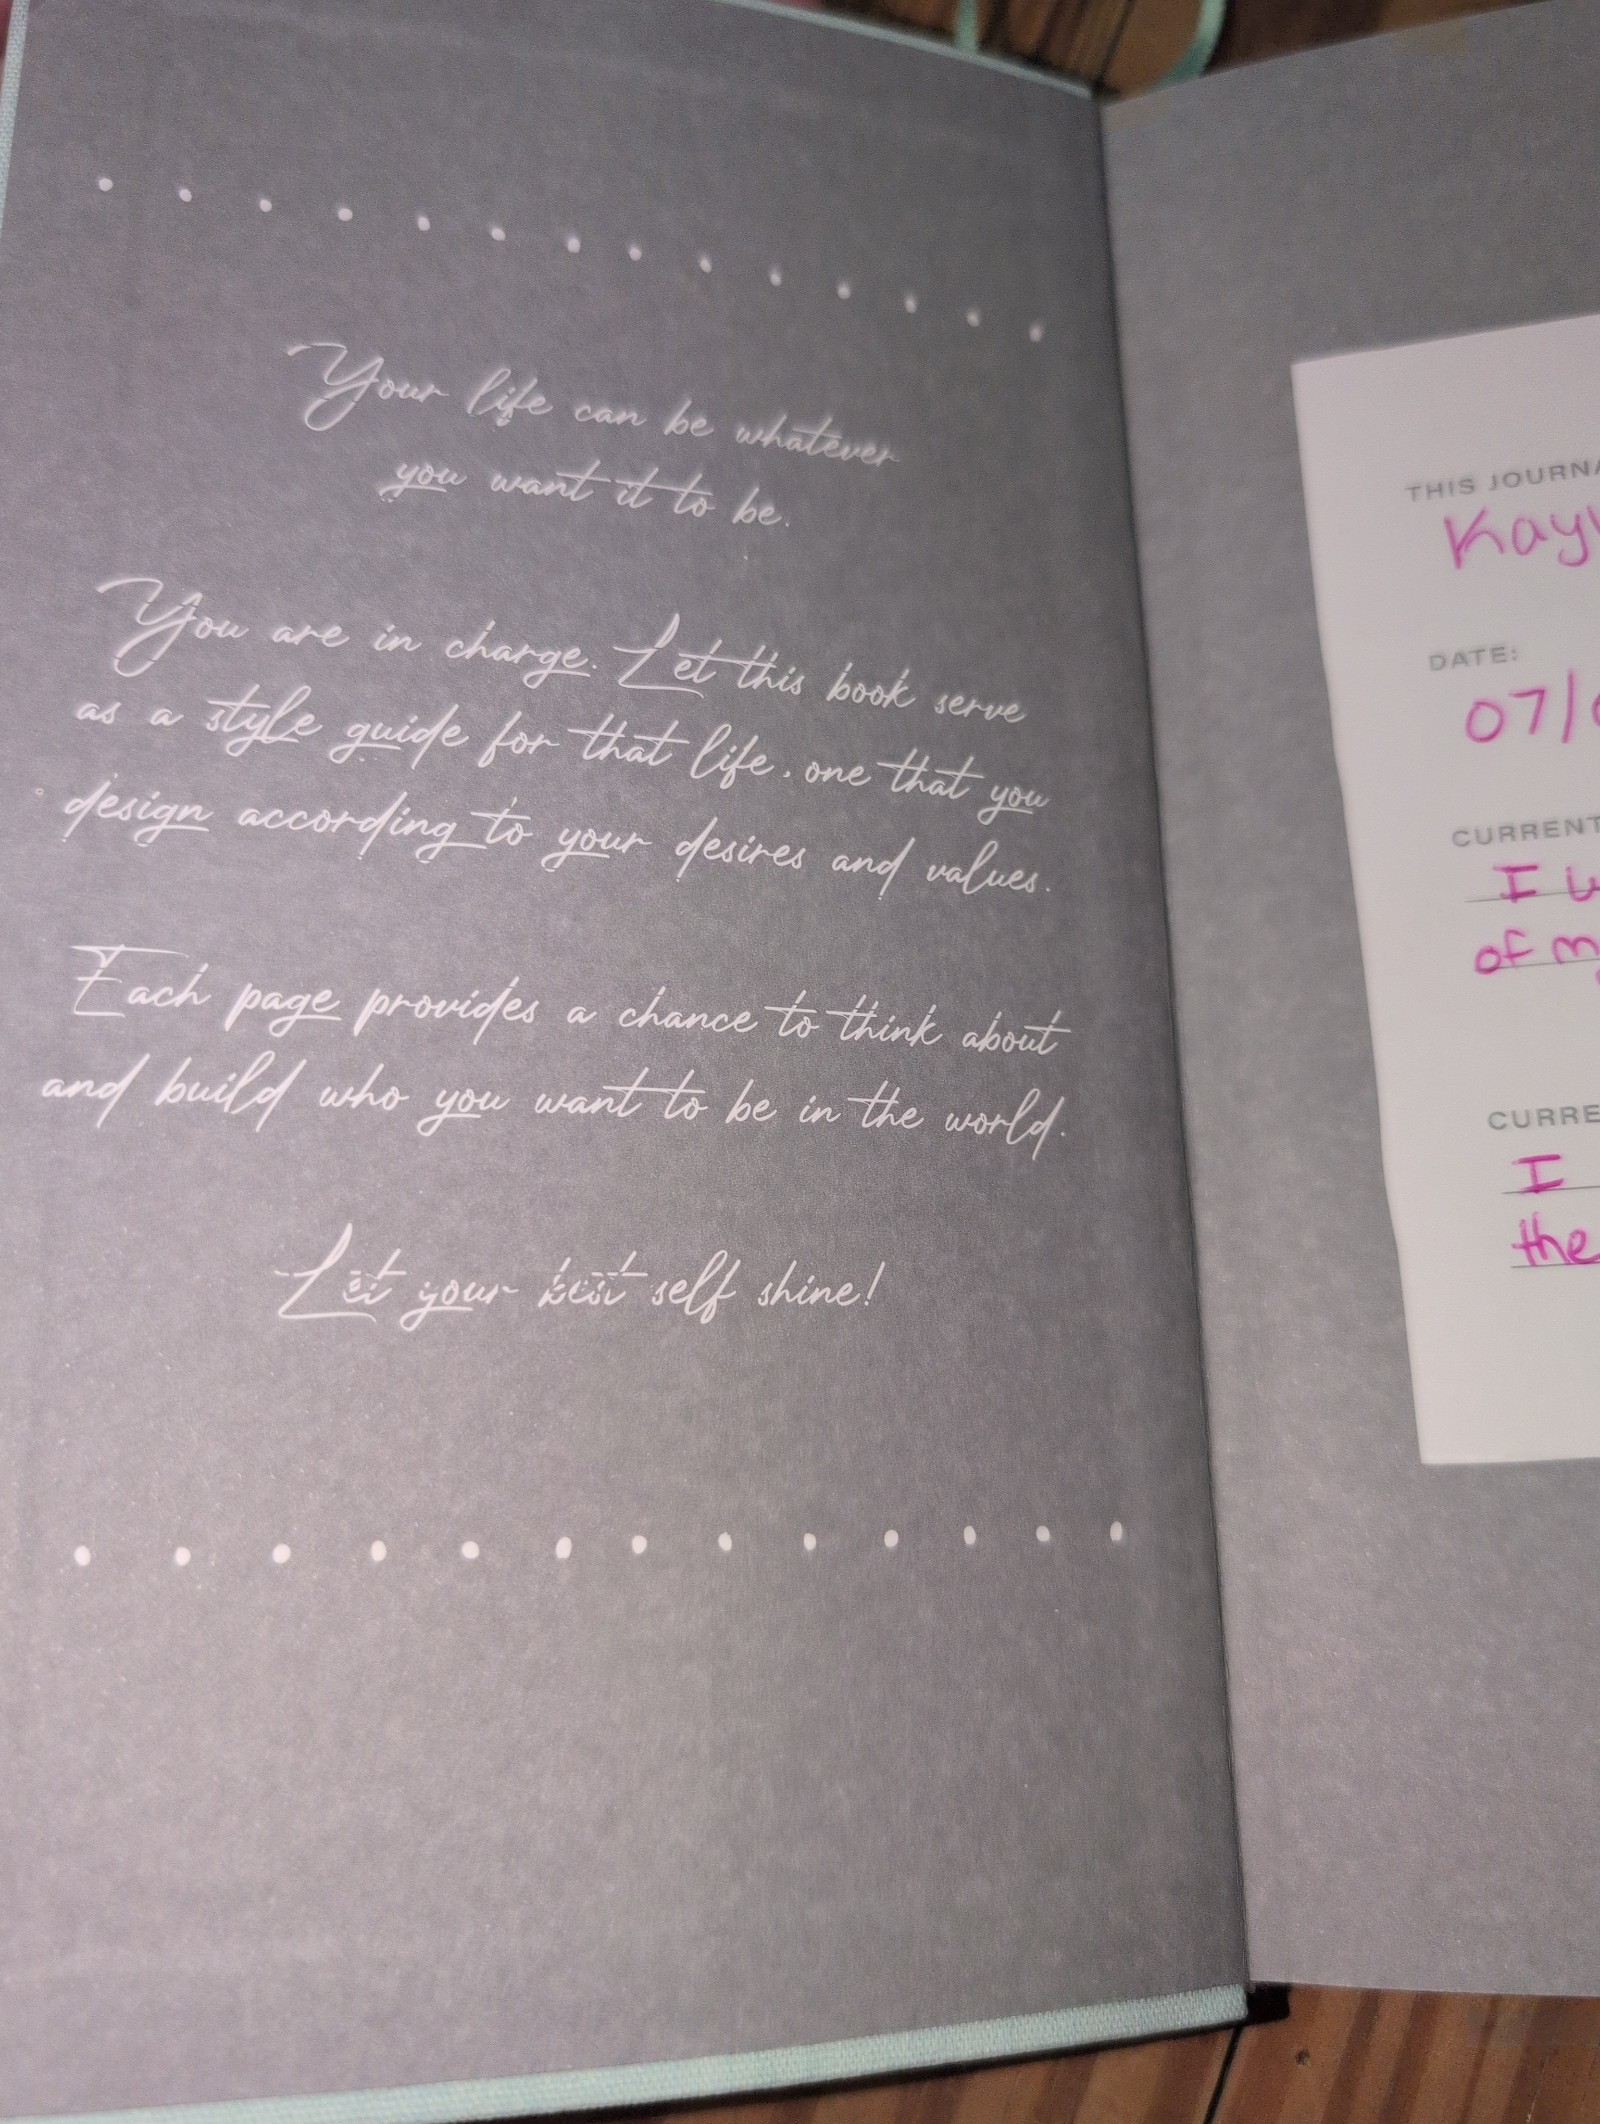 Your life can be whatever
you want it to be.
You are in charge. Let this book serve
as a style guide for that life, one that you
design according to your desires and values.
Each page provides a chance to think about
and build who you want to be in the world.
Let your best self shine!
THIS JOURNA
Kay
DATE:
07/
CURRENT
I
of m
CURRE
I
the